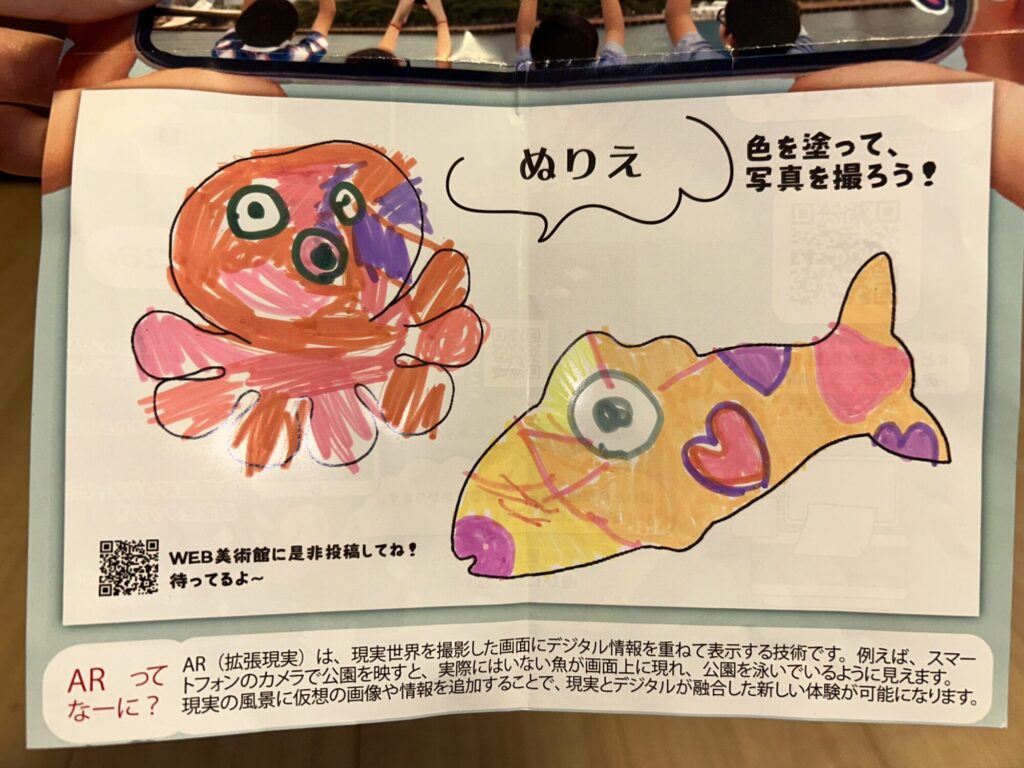 ぬりえ
色を塗って、
写真を撮ろう!
WEB美術館に是非投稿してね!
待ってるよ~
AR って
なーに?
AR(拡張現実)は、現実世界を撮影した画面にデジタル情報を重ねて表示する技術です。例えば、スマー
トフォンのカメラで公園を映すと、実際にはいない魚が画面上に現れ、公園を泳いでいるように見えます。
現実の風景に仮想の画像や情報を追加することで、現実とデジタルが融合した新しい体験が可能になります。